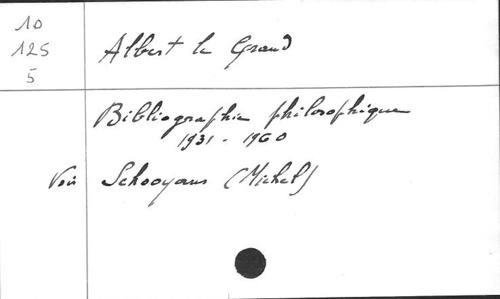 10
125
5
Albert le Grand
Bibliographie philosophique
1931 - 1960
Voir Schooyans (Michel)